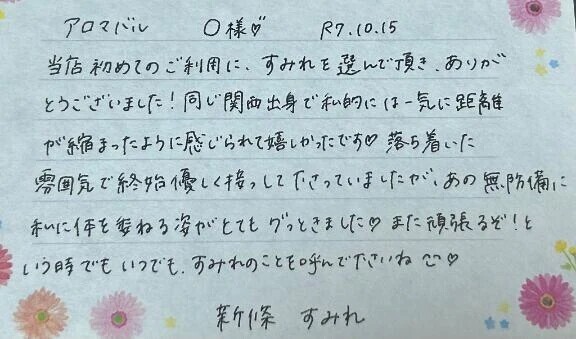 アロマバル 〇様♡ R7.10.15
当店初めてのご利用に、すみれを選んで頂き、ありが
とうございました!同じ関西出身で私的には一気に距離
が縮まったように感じられて嬉しかったです♡落ち着いた
雰囲気で終始優しく接っして下さっていましたが、あの無防備に
私に体を委ねる姿がとてもグッときました♡また頑張るぞ!と
いう時でもいつでも、すみれのことを呼んで下さいね♡
新條 すみれ